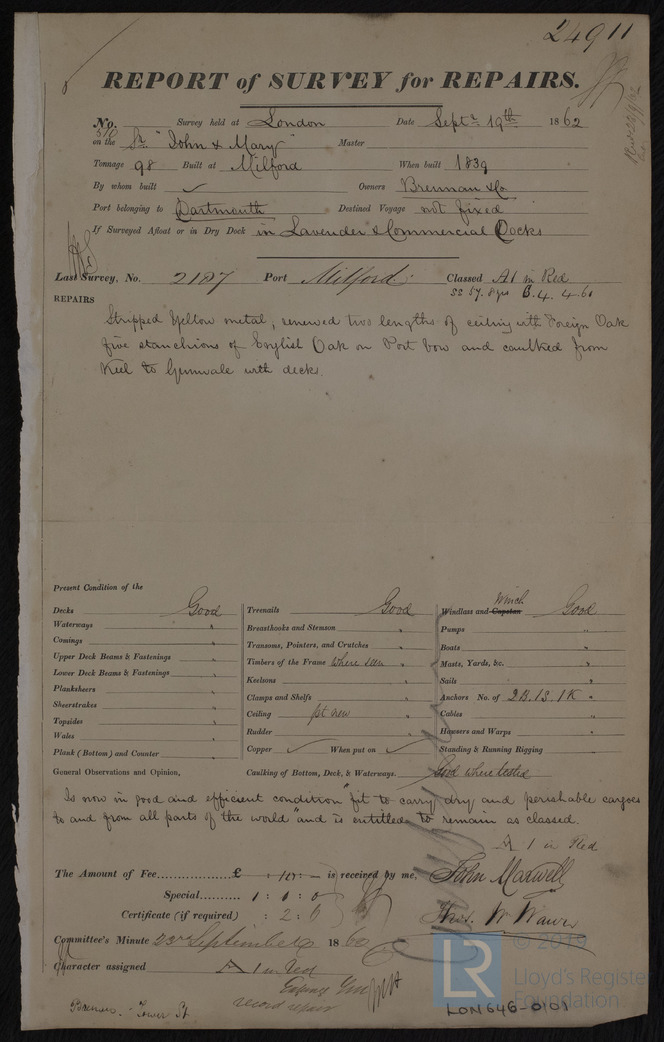 24911
REPORT of SURVEY for REPAIRS.
No. 510 Survey held at London Date Septr 19th 1862
on the Sr "John & Mary" Master
Tonnage 98 Built at Milford When built 1839
By whom built ✓ Owners Brennan & Co
Port belonging to Dartmouth Destined Voyage not fixed
If Surveyed Afloat or in Dry Dock in Lavender & Commercial Docks
Last Survey, No. 2187 Port Milford Classed A1 in Red
SS 57. 8 yrs B. 4. 4-61
REPAIRS
Stripped Yellow metal, renewed two lengths of ceiling with Foreign Oak
five stanchions of English Oak on Port bow and caulked from
Keel to Gunwale with decks.
Present Condition of the
Decks Good
Waterways "
Comings "
Upper Deck Beams & Fastenings "
Lower Deck Beams & Fastenings "
Planksheers "
Sheerstrakes "
Topsides "
Wales "
Plank (Bottom) and Counter "
Treenails Good
Breasthooks and Stemson "
Transoms, Pointers, and Crutches "
Timbers of the Frame where seen "
Keelsons "
Clamps and Shelfs "
Ceiling pt new "
Rudder "
Copper ✓ When put on ✓
Windlass and Capstan Winch Good
Pumps "
Boats "
Masts, Yards, &c. "
Sails "
Anchors No. of 2B. 1S. 1K "
Cables "
Hawsers and Warps "
Standing & Running Rigging "
General Observations and Opinion, Caulking of Bottom, Deck, & Waterways. Good where tested
Is now in good and efficient condition "fit to carry dry and perishable cargoes
to and from all parts of the world" and is entitled to remain as classed.
A 1 in Red
The Amount of Fee £ : : is received by me, John Maxwell
Special 1 : 1 : 0
Certificate (if required) : 2 : 6
Committee's Minute 23rd September 186
Character assigned A 1 in Red
record repair
Brennan. Tower St.
© 2019
LR
Lloyd's Register
Foundation
LON646-0101